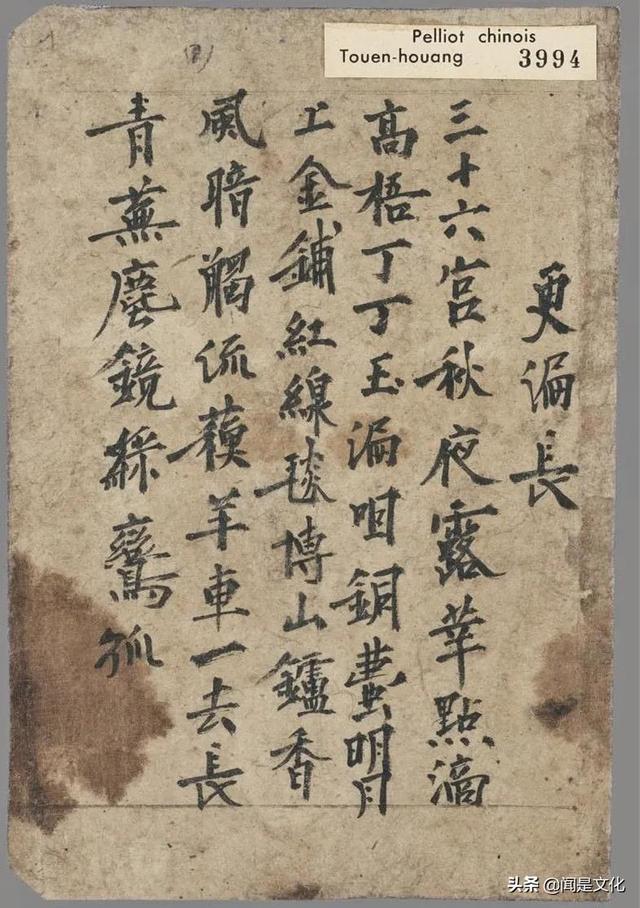 Pelliot chinois
Touen-houang 3994
更漏長
三十六宮秋夜露華點滴
高梧丁丁玉漏咽銅壺明月
上金鋪紅線毯博山鑪香
風暗觸流蘓羊車一去長
青蕪塵鏡綵鸞孤
头条 @闻是文化